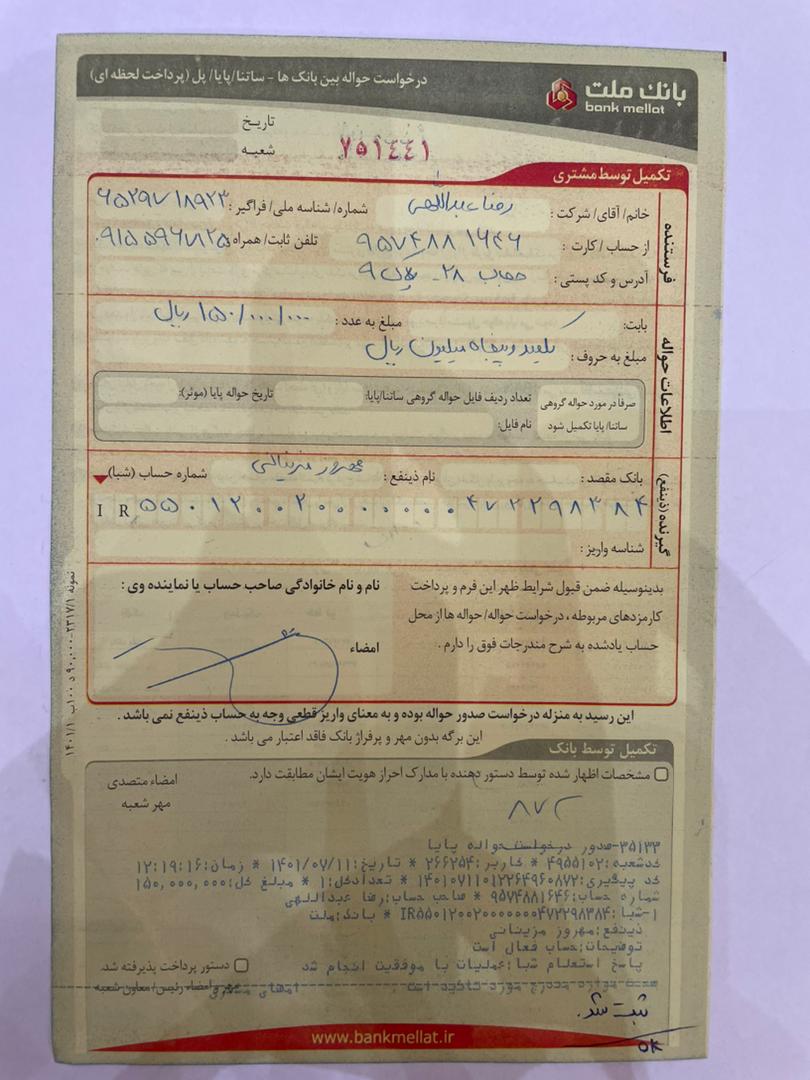 درخواست حواله بین بانک ها - ساتنا/پایا/پل (پرداخت لحظه ای)
بانک ملت
bank mellat
تاریخ
شعبه
۷۵۱۴۴۱
تکمیل توسط مشتری
فرستنده
خانم/ آقای/ شرکت : رضا عبداللهی شماره/ شناسه ملی/ فراگیر :
از حساب / کارت : ۹۵۷۴۸۸۱۶۴۶ تلفن ثابت/ همراه :
آدرس و کد پستی : ۲۸ - پلاک ۹
اطلاعات حواله
بابت:
مبلغ به عدد : ۱۵۰/۰۰۰/۰۰۰ ریال
مبلغ به حروف : یکصد و پنجاه میلیون ریال
صرفاً در مورد حواله گروهی ساتنا/ پایا تکمیل شود
تعداد ردیف فایل حواله گروهی ساتنا/پایا: تاریخ حواله پایا (موثر):
نام فایل:
گیرنده (ذینفع)
بانک مقصد : نام ذینفع : مهروز مزینانی شماره حساب (شبا)
IR ۵۵۰۱۲۰۰۲۰۰۰۰۰۰۰۴۷۲۲۹۸۳۸۴
شناسه واریز :
بدینوسیله ضمن قبول شرایط ظهر این فرم و پرداخت
کارمزدهای مربوطه ، درخواست حواله/ حواله ها از محل
حساب یادشده به شرح مندرجات فوق را دارم .
نام و نام خانوادگی صاحب حساب یا نماینده وی :
امضاء
این رسید به منزله درخواست صدور حواله بوده و به معنای واریز قطعی وجه به حساب ذینفع نمی باشد .
این برگه بدون مهر و پرفراژ بانک فاقد اعتبار می باشد .
نمونه ۲۳۱۷/۱-۹۰,۰۰۰ د ۱۰۰ ب ۱۴۰۱/۱
تکمیل توسط بانک
مشخصات اظهار شده توسط دستور دهنده با مدارک احراز هویت ایشان مطابقت دارد.
امضاء متصدی
مهر شعبه
۸۷۲
۳۵۱۳۳-صدور درخواست حواله پایا
کدشعبه:۴۹۵۵۱۰۲ * کاربر:۲۶۶۲۵۴ * تاریخ:۱۴۰۱/۰۷/۱۱ * زمان:۱۲:۱۹:۱۶
کد پیگیری:۱۴۰۱۰۷۱۱۰۱۲۲۶۴۹۶۰۸۷۲ * تعدادکل:۱ * مبلغ کل:۱۵۰,۰۰۰,۰۰۰
شماره حساب:۹۵۷۴۸۸۱۶۴۶ * صاحب حساب:رضا عبداللهی
۱-شبا:IR۵۵۰۱۲۰۰۲۰۰۰۰۰۰۰۴۷۲۲۹۸۳۸۴ * بانک:ملت
ذینفع:مهروز مزینانی
توضیحات:حساب فعال است
پاسخ استعلام شبا:عملیات با موفقیت انجام شد
دستور پرداخت پذیرفته شد.
مهر و امضاء رئیس/ معاون شعبه
صحت موارد مندرج مورد تائید است امضای مشتری
ثبت شد.
ok
www.bankmellat.ir